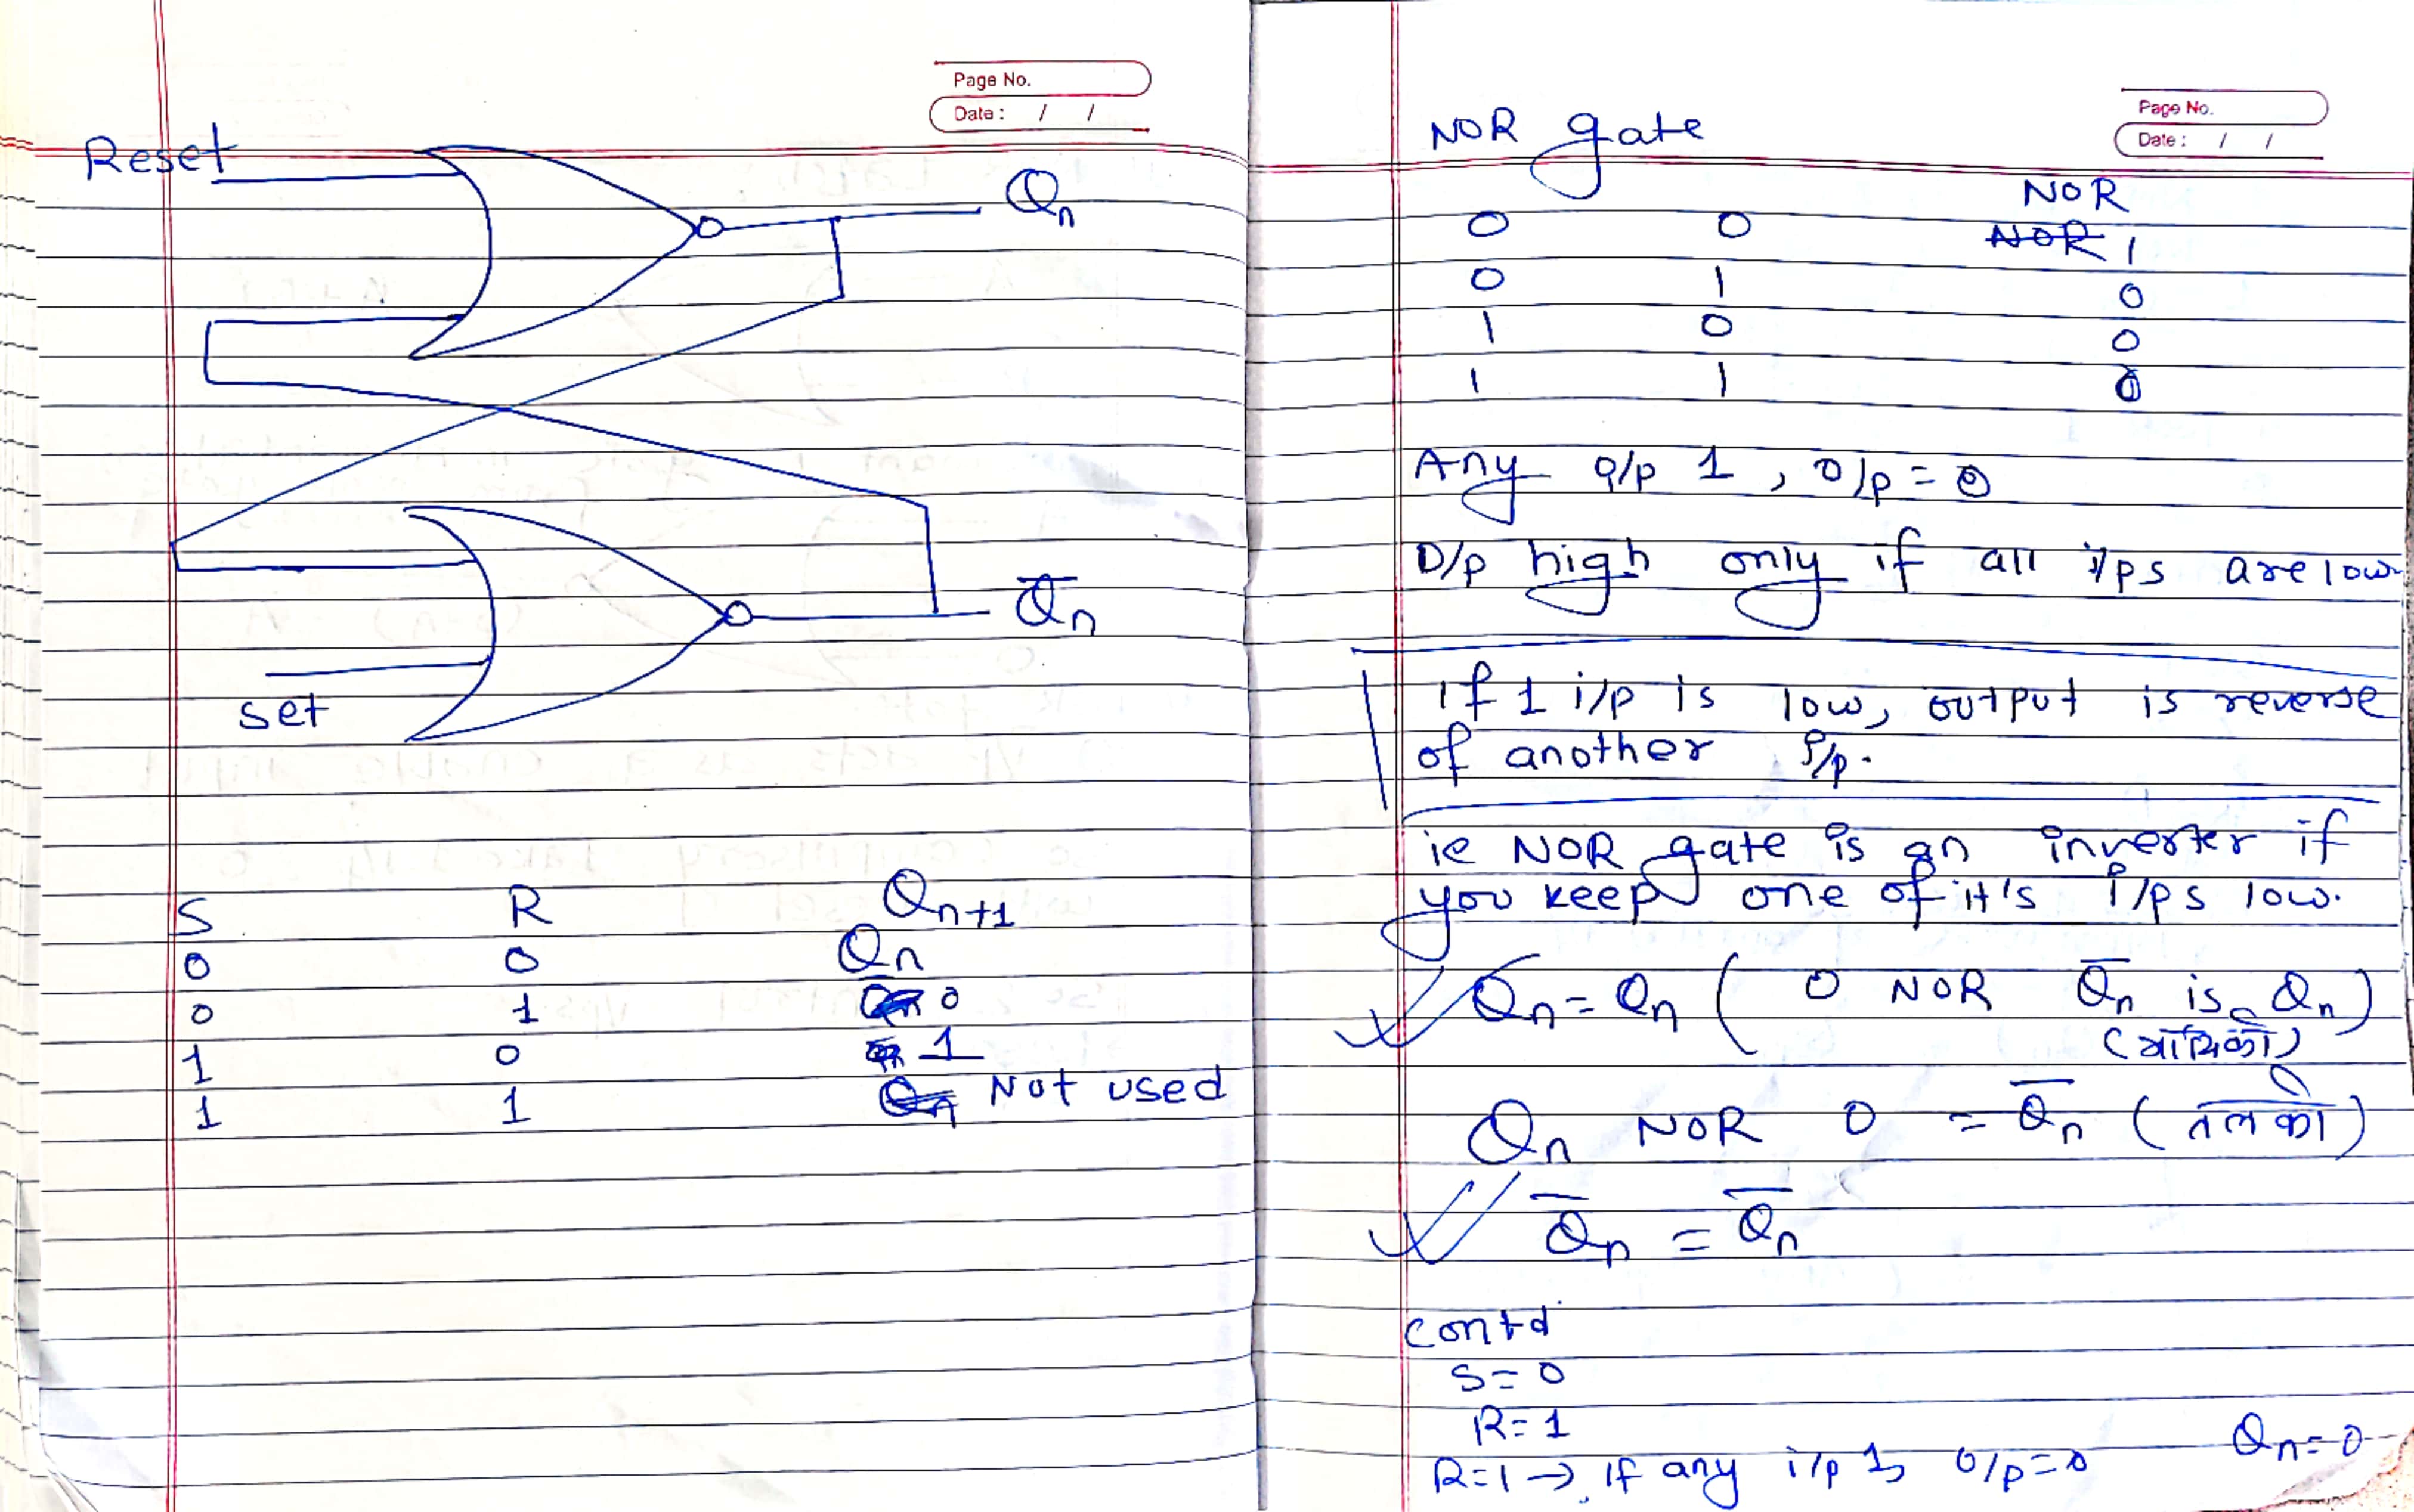 Page No.
Date : / /
Reset
Qn
Q̅n
set
S R Qn+1
0 0 Qn
0 1 0
1 0 1
1 1 Not used
Page No.
Date : / /
NOR gate
NOR
0 0 NOR 1
0 1 0
1 0 0
1 1 0
Any i/p 1, o/p = 0
O/p high only if all i/ps are low
if 1 i/p is low, output is reverse
of another i/p.
ie NOR gate is an inverter if
you keep one of it's i/ps low.
Qn = Qn ( 0 NOR Q̅n is Qn )
(माथिको)
Qn NOR 0 = Q̅n ( तलको )
Q̅n = Q̅n
contd
S = 0
R = 1
Qn = 0
R=1 → If any i/p 1, o/p = 0